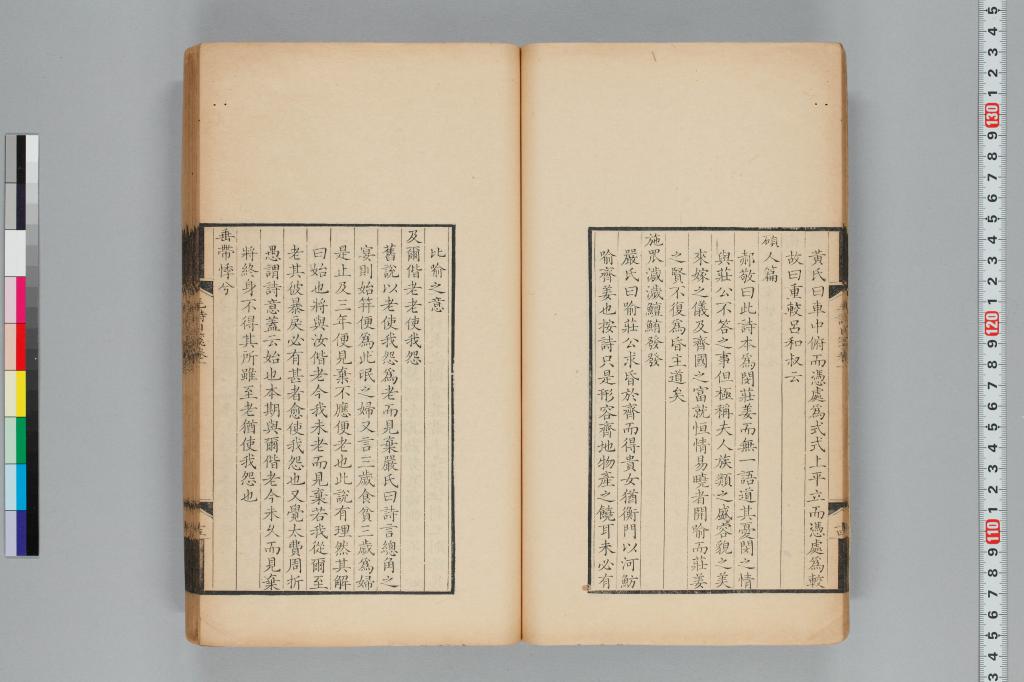 黃氏曰車中俯而憑處為式式上平立而憑處為較
故曰重較呂和叔云
碩人篇
郝敬曰此詩本為閔莊姜而無一語道其憂閔之情
與莊公不答之事但極稱夫人族類之盛容貌之美
來嫁之儀及齊國之富就恒情易曉者開喻而莊姜
之賢不復為昏主道矣
施罛濊濊鱣鮪發發
嚴氏曰喻莊公求昏於齊而得貴女猶衡門以河魴
喻齊姜也按詩只是形容齊地物產之饒耳未必有
比喻之意
及爾偕老老使我怨
舊說以老使我怨為老而見棄嚴氏曰詩言總角之
宴則始笄便為此氓之婦又言三歲食貧三歲為婦
是止及三年便見棄不應便老也此說有理然其解
曰始也將與汝偕老今我未老而見棄若我從爾至
老其彼暴戾必有甚者愈使我怨也又覺太費周折
愚謂詩意蓋云始也本期與爾偕老今未久而見棄
將終身不得其所雖至老猶使我怨也
垂帶悸兮